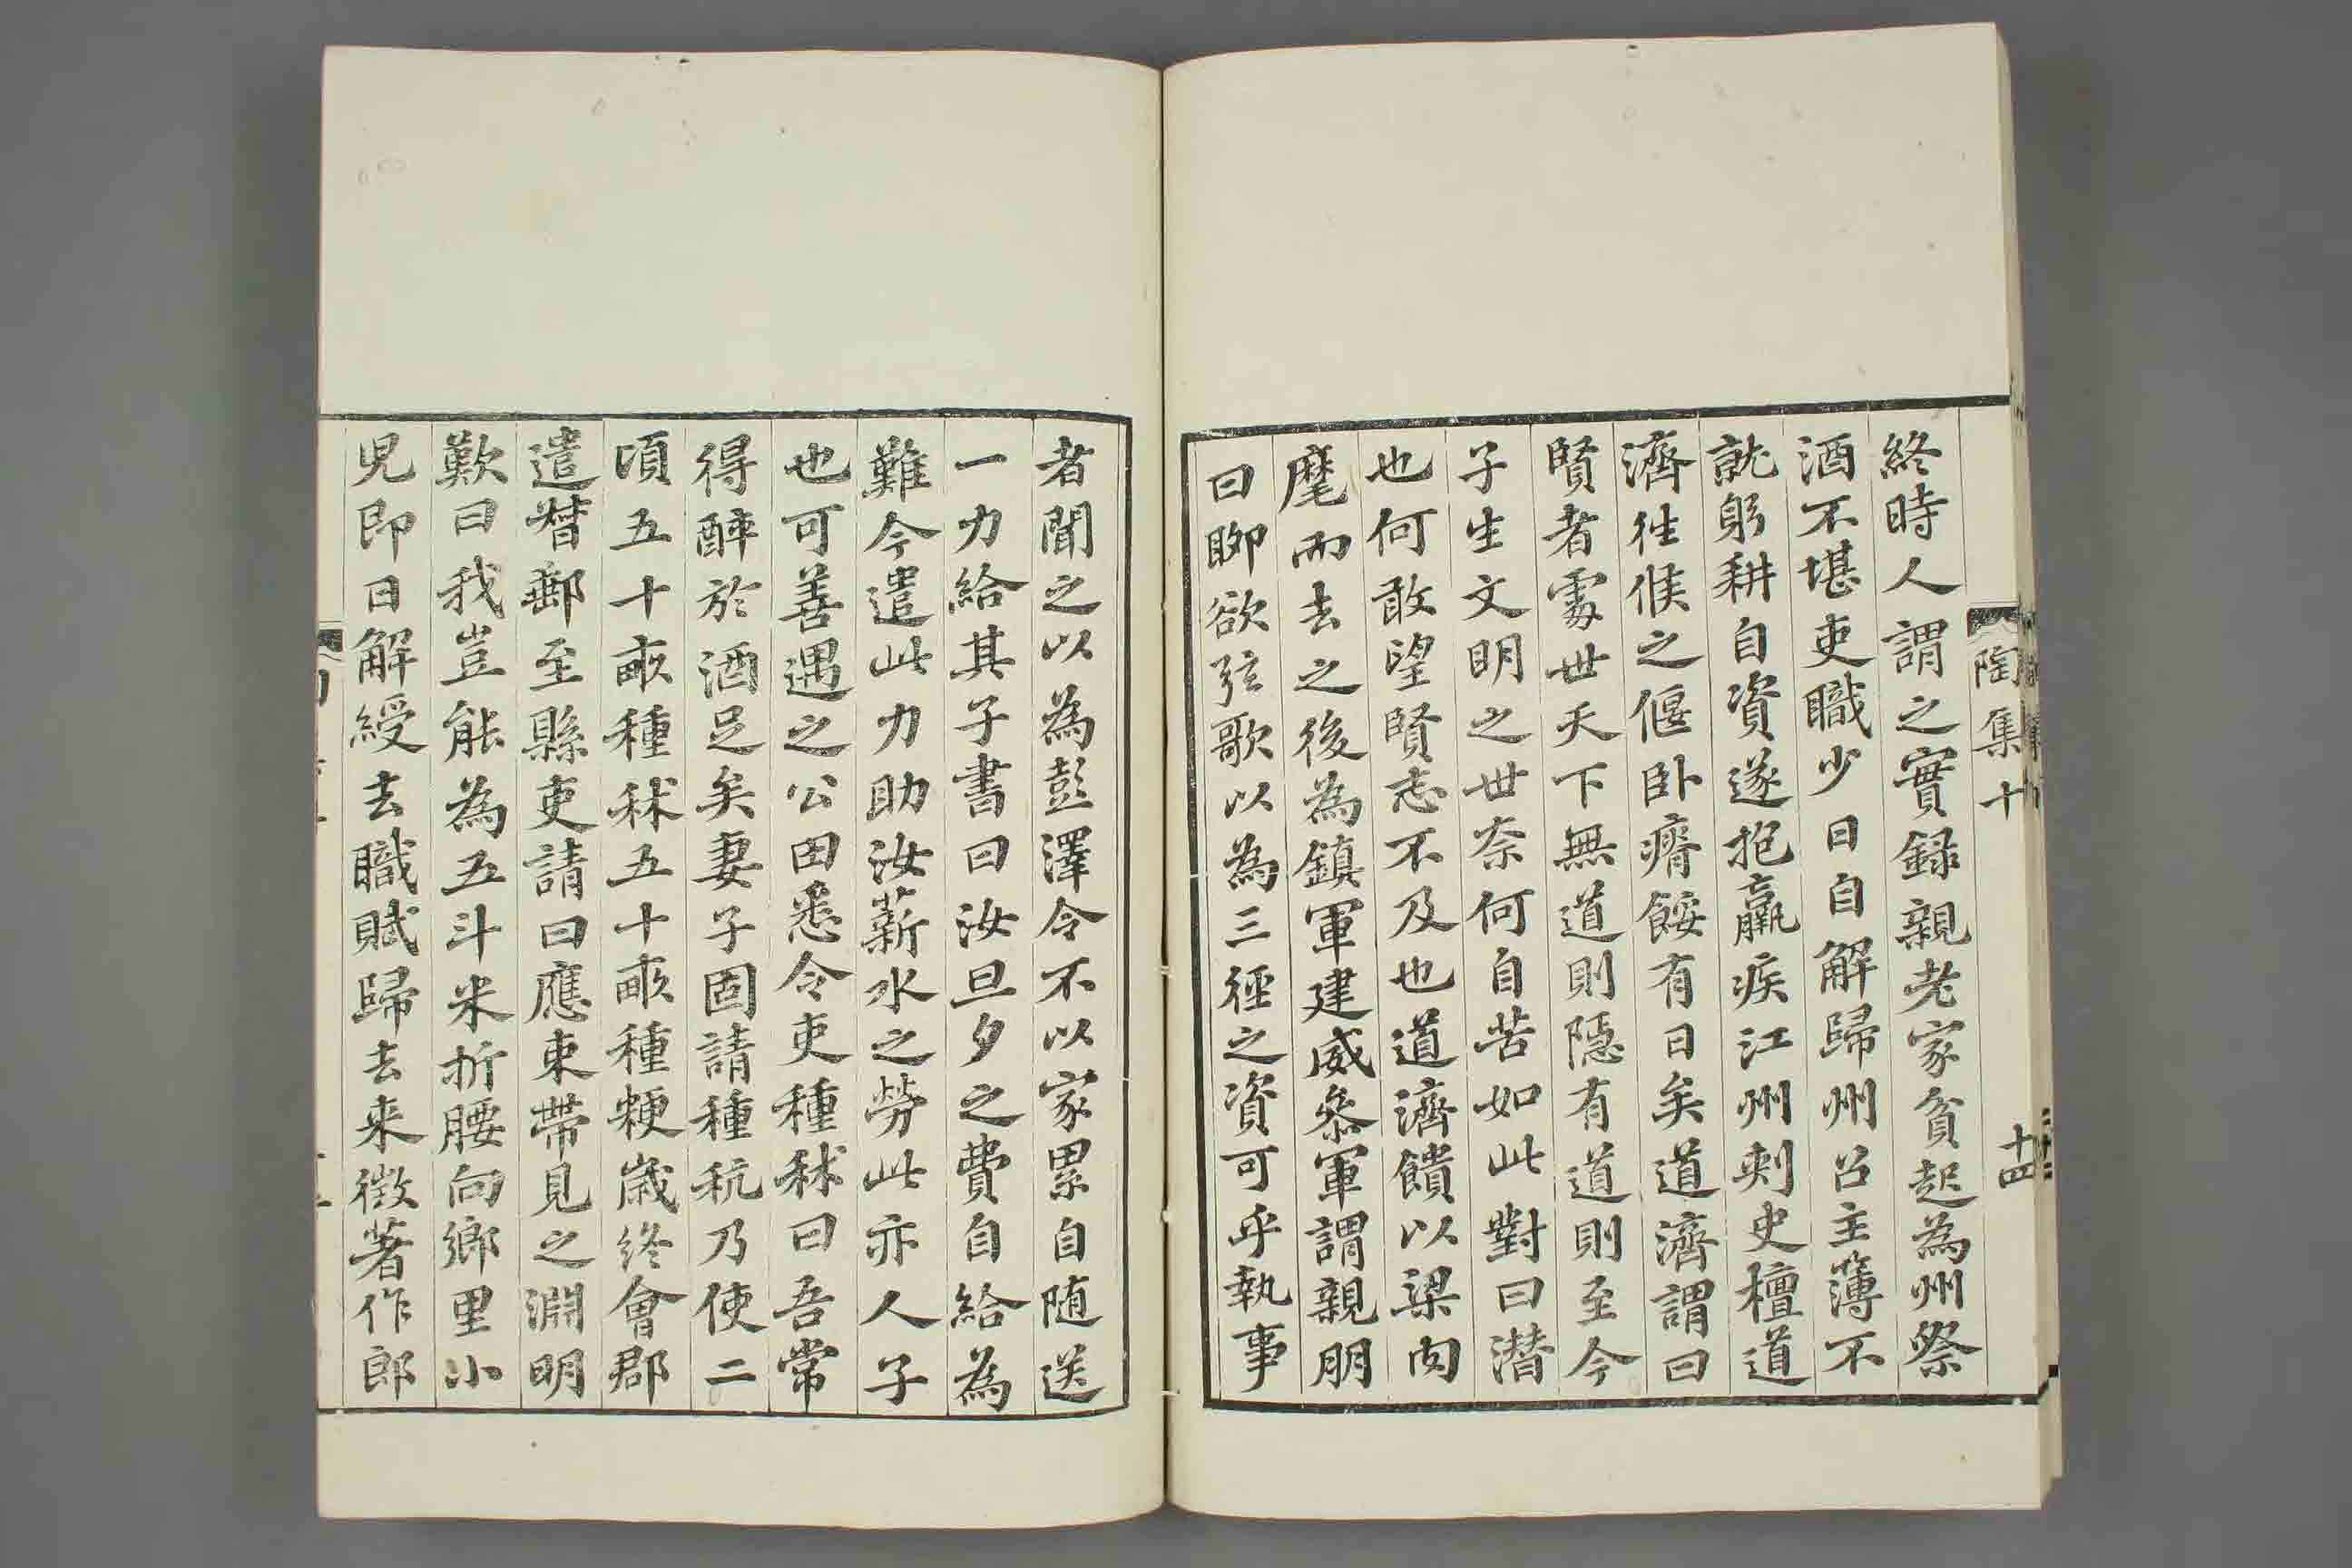 陶集十
十四
終時人謂之實録親老家貧起為州祭
酒不堪吏職少日自解歸州召主簿不
就躬耕自資遂抱羸疾江州刺史檀道
濟往候之偃卧瘠餒有日矣道濟謂曰
賢者處世天下無道則隱有道則至今
子生文明之世奈何自苦如此對曰潜
也何敢望賢志不及也道濟饋以粱肉
麾而去之後為鎮軍建威叅軍謂親朋
曰聊欲弦歌以為三徑之資可乎執事
者聞之以為彭澤令不以家累自随送
一力給其子書曰汝旦夕之費自給為
難今遣此力助汝薪水之勞此亦人子
也可善遇之公田悉令吏種秫曰吾常
得醉於酒足矣妻子固請種秔乃使二
頃五十畝種秫五十畝種粳嵗終會郡
遣督郵至縣吏請曰應束帶見之淵明
歎曰我豈能為五斗米折腰向鄉里小
児即日解綬去職賦歸去来徴著作郎